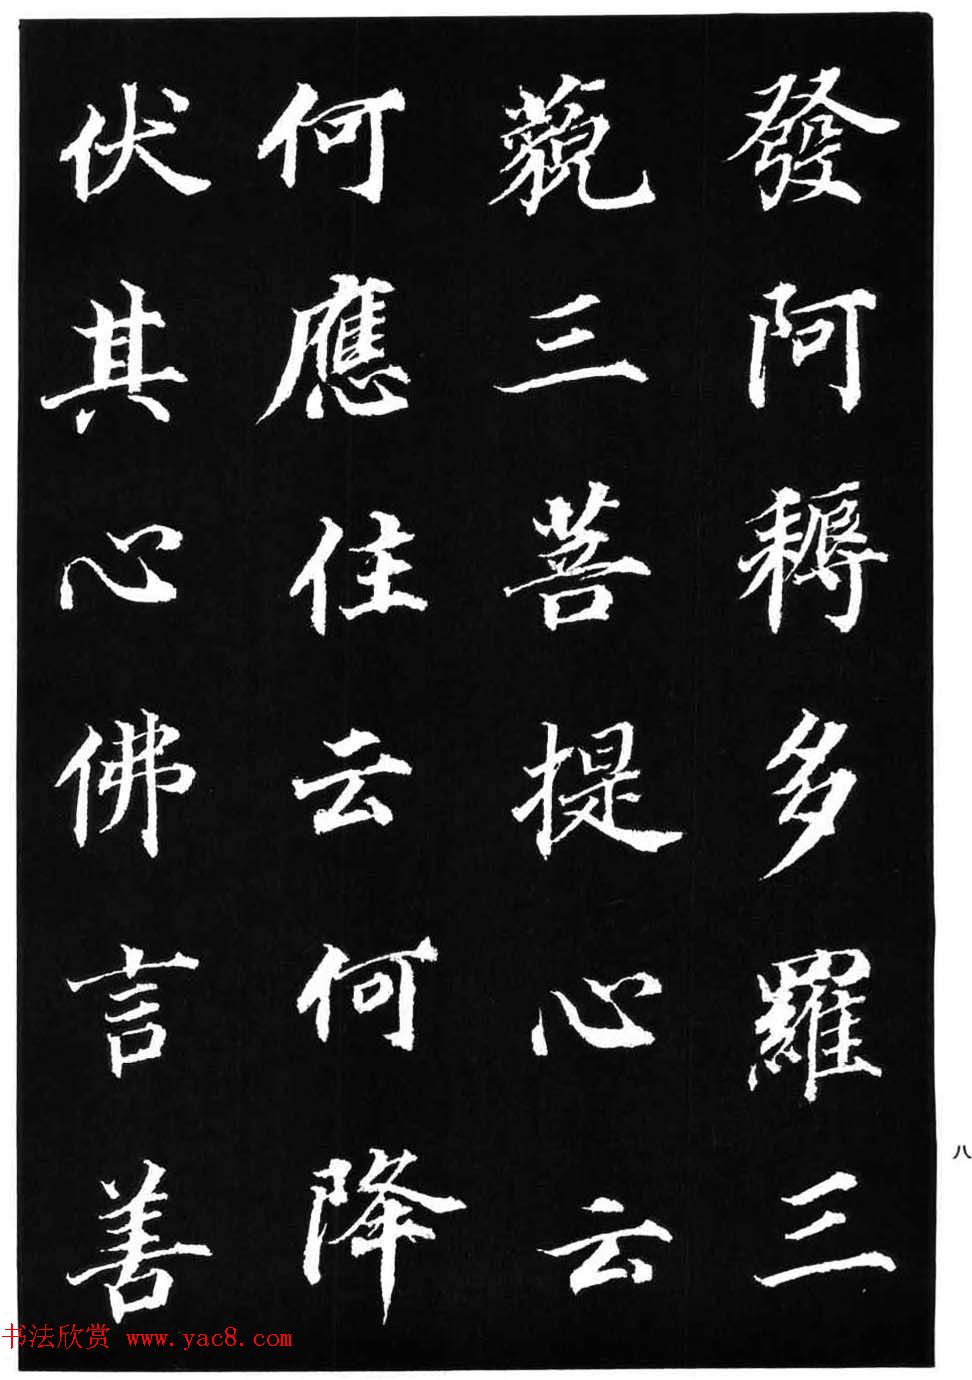 發阿耨多羅三
藐三菩提心云
何應住云何降
伏其心佛言善
八
书法欣赏 www.yac8.com